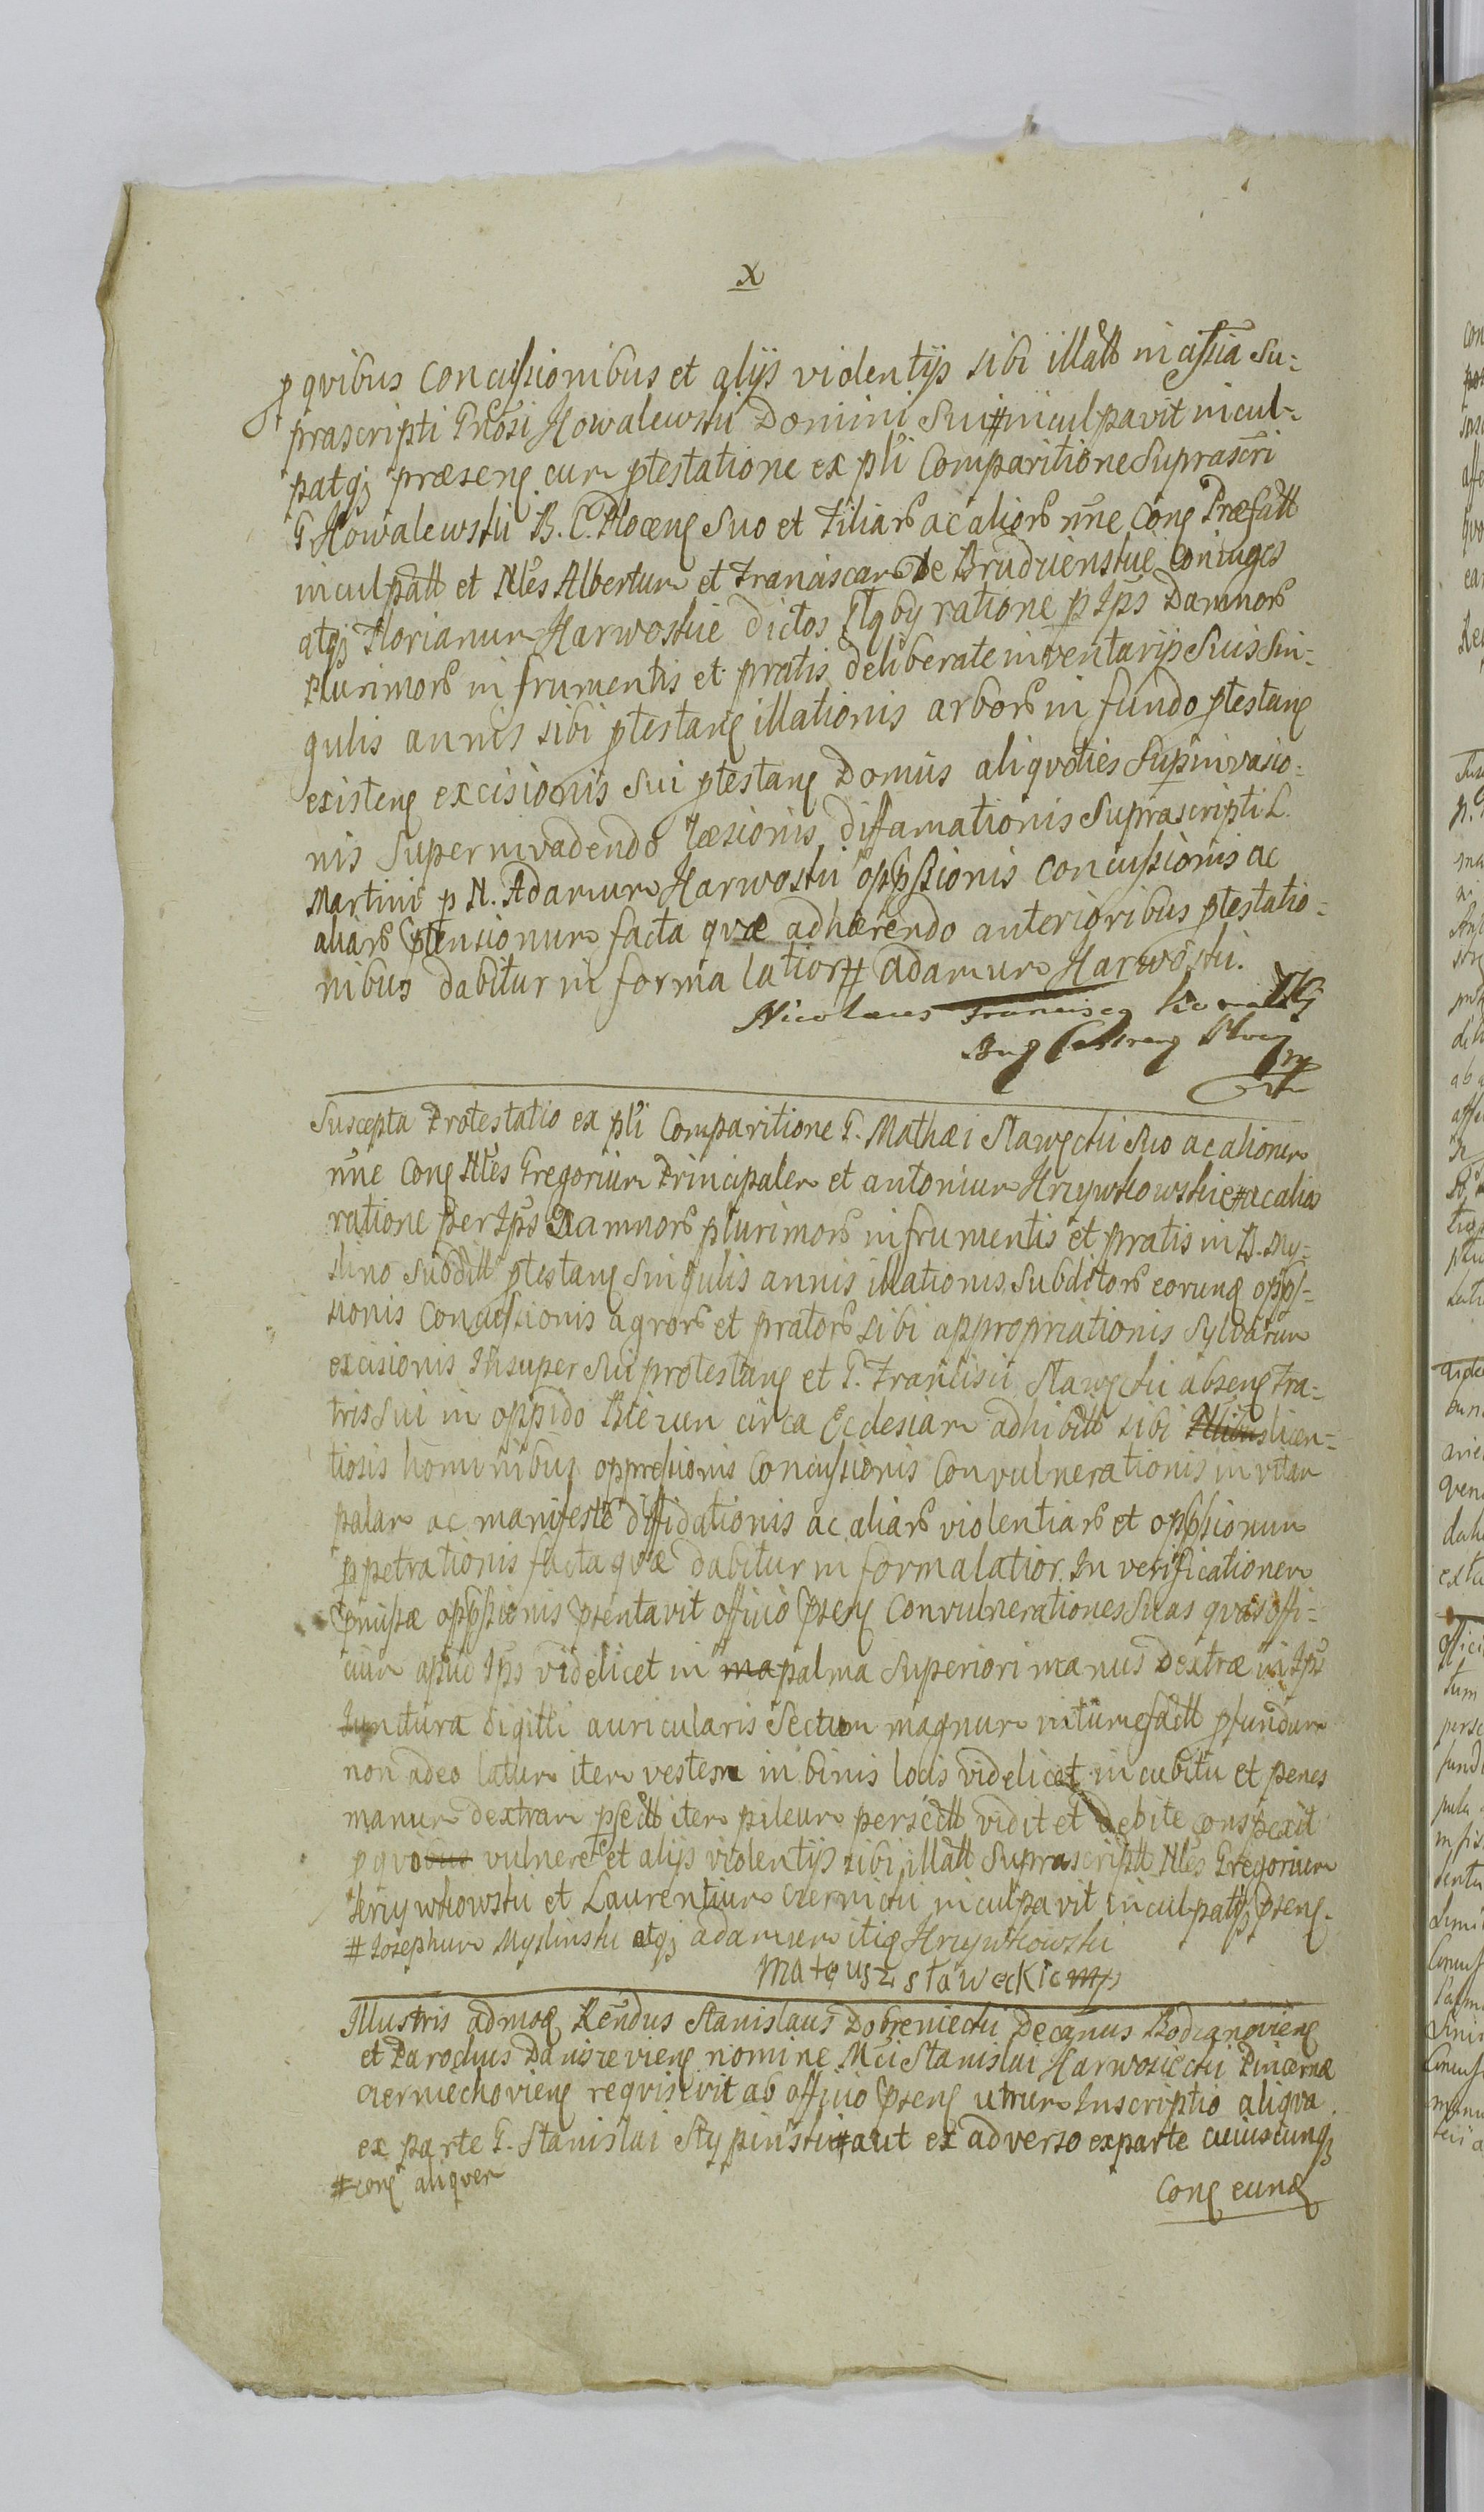 X
p qvibus concussionibus et alijs violentijs sibi illatt in assia Su-
prascripti Grosi Kowalewski Domini Sui # inculpavit incul-
patq; præsenς cum ptestatione ex pli Comparitione Suprascri
G. Kowalewski B. C. Plocenς Suo et Filiarō ac aliorō nne Conς Præfatt
inculpatt et Nles Albertum et Franciscam de Brudvienskie Coniuges
atq; Florianum Karwoskie dictos ratione p Ips Damnorō
plurimorō in frumentis et pratis deliberate inventarijs Suis Sin-
gulis annis sibi ptestanς illationis arborō in fundo ptestanς
existenς excisionis sui ptestanς Domus aliqvoties Supinvasio-
nis Superinvadendo Læsionis diffamationis Suprascripti L.
Martini p N. Adamum Karwoski oppssionis Concussionis ac
aliarō ptensionum facta qvæ adhærendo anterioribus ptestatio-
nibus dabitur in forma latior # Adamum Karwoski.
Nicolaus Franciscς
Burg Castrenς Plocenς
mp
Suscepta Protestatio ex pli Comparitione G. Mathæi Slawęcki Suo ac alionum
nne Conς Nles Gregorium Principalem et Antonium Krzywkowskie # ac alios
ratione per Ips Damnorō plurimorō in frumentis et pratis in B. My-
slino Subditt ptestanς Singulis annis illationis Subditorō eorunς oppss-
sionis Concussionis agrorō et pratorō sibi appropriationis Sylvarum
excisionis Insuper Sui protestanς et G. Francisci Slawęcki absenς Fra-
tris Sui in oppido Biezun circa Ecclesiam adhibitt sibi licen-
tiosis hominibus oppressionis Concussionis Convulnerationis in vitam
palam ac manifeste diffidationis ac aliarō violentiarō et oppssionum
ppetrationis facta qvæ dabitur in forma latior. In verificationem
pmissæ oppssionis psentavit officio psenς Convulnerationes Suas qvas offi-
cium apud Ips videlicet in ma palma Superiori manus Dextræ in Ips
Iunctura digitti auricularis Sectum magnum intumefactt pfundum
non adeo latum item vestem in binis locis videlicet in cubitu et penes
manum dextram psectt item pileum persectt vidit et debite conspexit
p qvobus vulnere et alijs violentijs sibi illatt Suprascriptt Nles Gregorium
Krzywkowski et Laurentium Czernicki inculpavit inculpatq; psenς.
# Iosephum Myslinski atq; Adamum itiς Krzywkowski
Mateusz Sławęcki mp
Illustris admoς Rendus Stanislaus Dobreniecki Decanus Bodzanovienς
et Parochus Daniszevienς nomine Mci Stanislai Karwosiecki Pincernæ
Czerniechovienς reqvisivit ab officio psenς utrum Inscriptio aliqva
ex parte G. Stanislai Stypinski # aut ex adverso ex parte cuiuscunq;
# conς aliqvem
Conς eunς